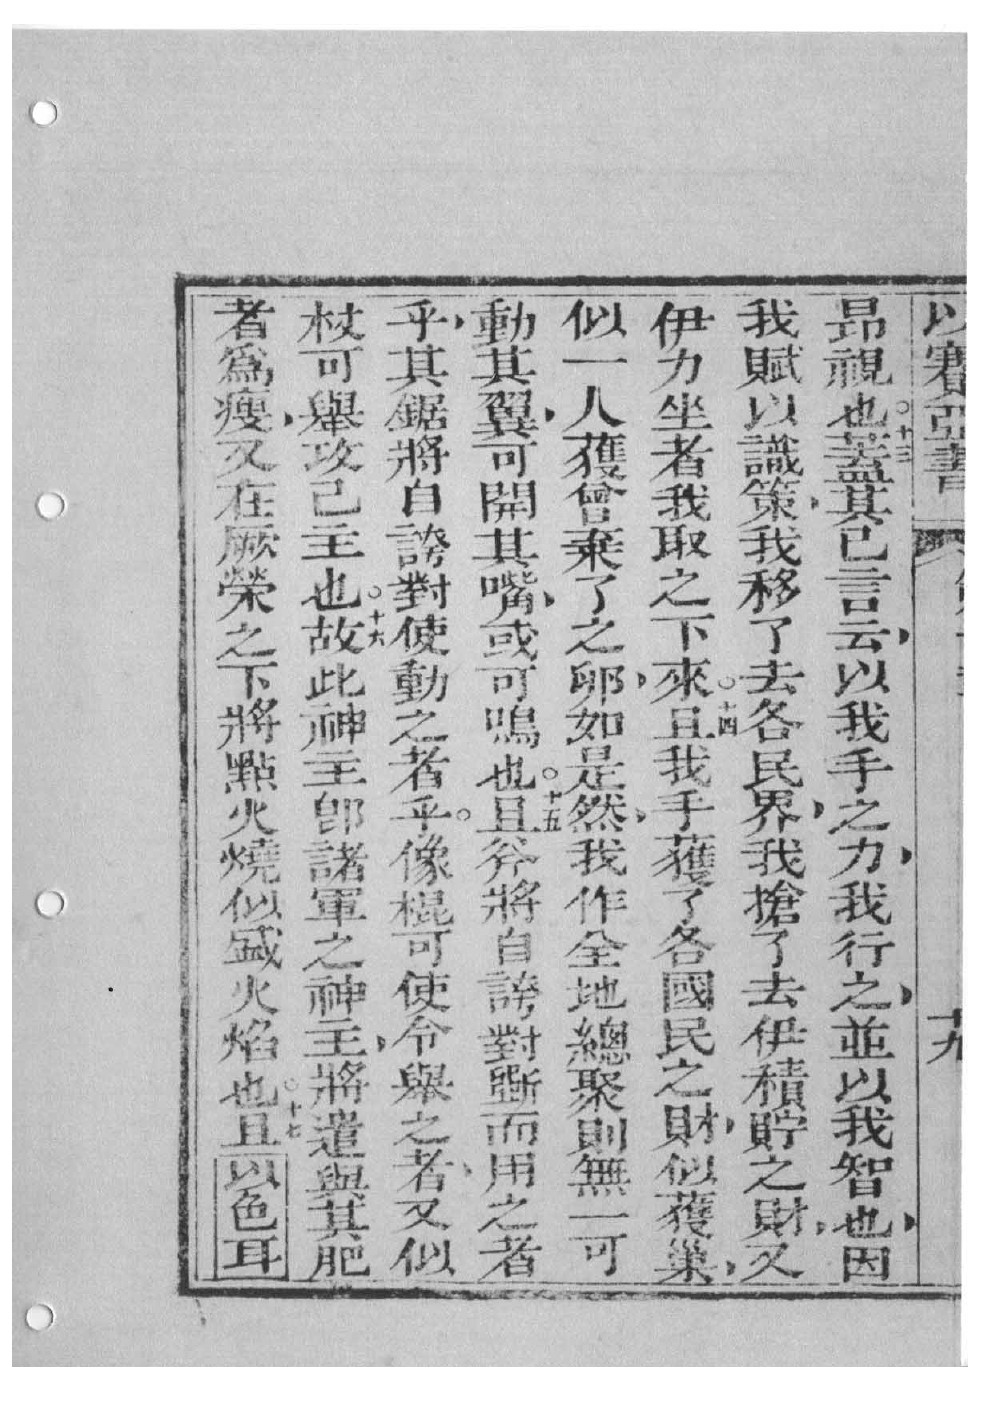 以賽亞書 十九
昻視也○十三蓋其已言云以我手之力我行之並以我智也因
我賦以識策我移了去各民界我搶了去伊積貯之財又
伊力坐者我取之下來○十四且我手獲了各國民之財似獲巢
似一人獲曾棄了之卵如是然我作全地總聚則無一可
動其翼可開其嘴或可鳴也○十五且斧將自誇對斷而用之者
乎其鋸將自誇對使動之者乎○像棍可使令舉之者又似
杖可舉攻己主也○十六故此神主卽諸軍之神主將遣與其肥
者爲瘦又在厥榮之下將點火燒似盛火焰也○十七且以色耳